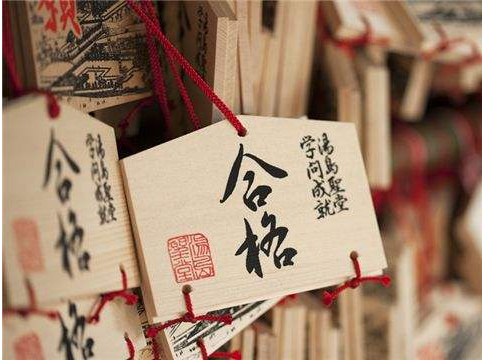 湯島聖堂
学問成就
合格
湯島
聖堂
湯島聖堂
学問成就
合格
合格
願